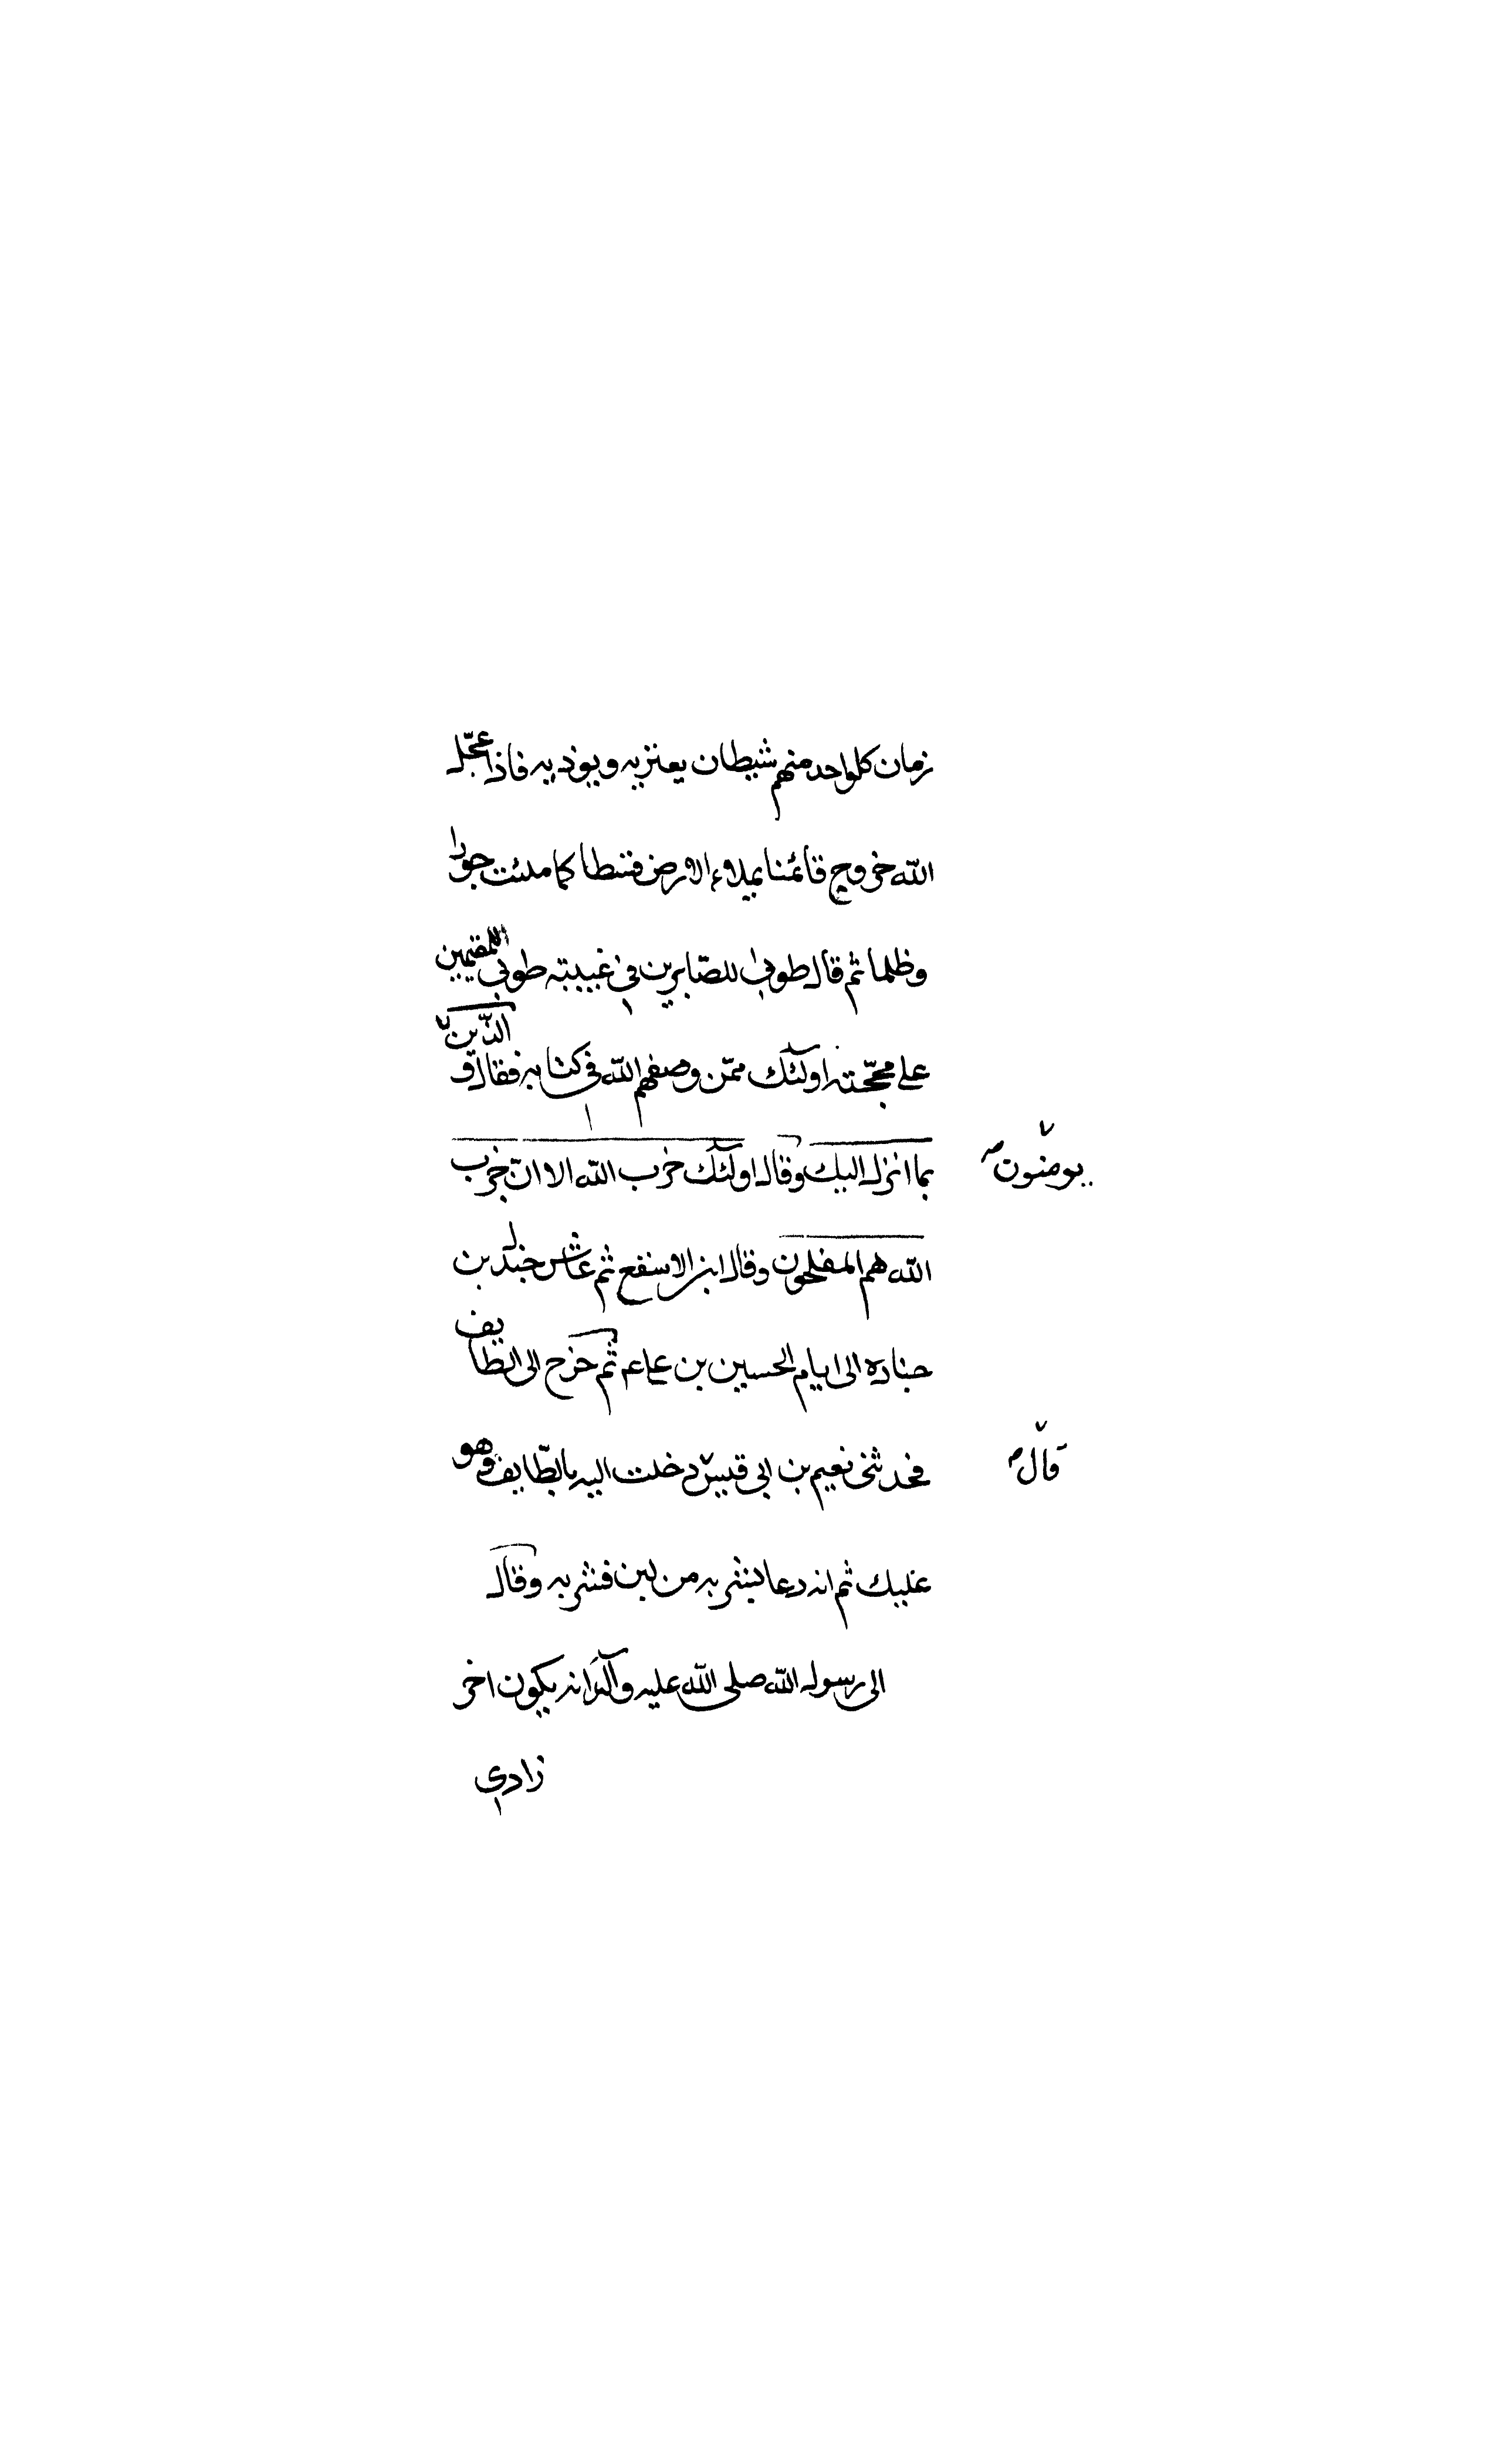 زمان كلواحد منهم شيطان يعتريه ويوذيه فاذا عجّل
الله خروج قائمنا يملاء الارض قسطا كما ملئت جورا
وظلما ثم قال طوبى للصّابرين في غيبته طوبى للمقيمين
على محجّته اولئك ممّن وصفهم الله في كتابه فقال و الذّين
يومنون
بما انزل اليك وقال اولئك حزب الله الا انّ حزب
الله هم المفلحون وقال ابن الاسفع ثم عاش جندل بن
جناده الى ايام الحسين بن على عم ثم خرج الى الطايف
فحدثني نعيم بن ابي قيس دخلت اليه بالطّايف وهو
قال
عليك ثم انه دعا بشربه من لبن فشربه وقال
الى رسول الله صلى الله عليه وآله انه يكون اخر
زادي